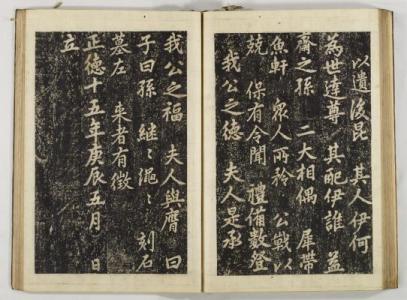 以遺後昆　其人伊何
為世達尊　其配伊誰　益
齋之孫　二大相偶　犀帶
魚軒　眾人所矜　公戟以
兢　保有令聞　禮備數登
我公之德　夫人是承
我公之福　夫人與膺　曰
子曰孫　繼〻繩〻　刻石
墓左　来者有徵
正德十五年庚辰五月　日
立